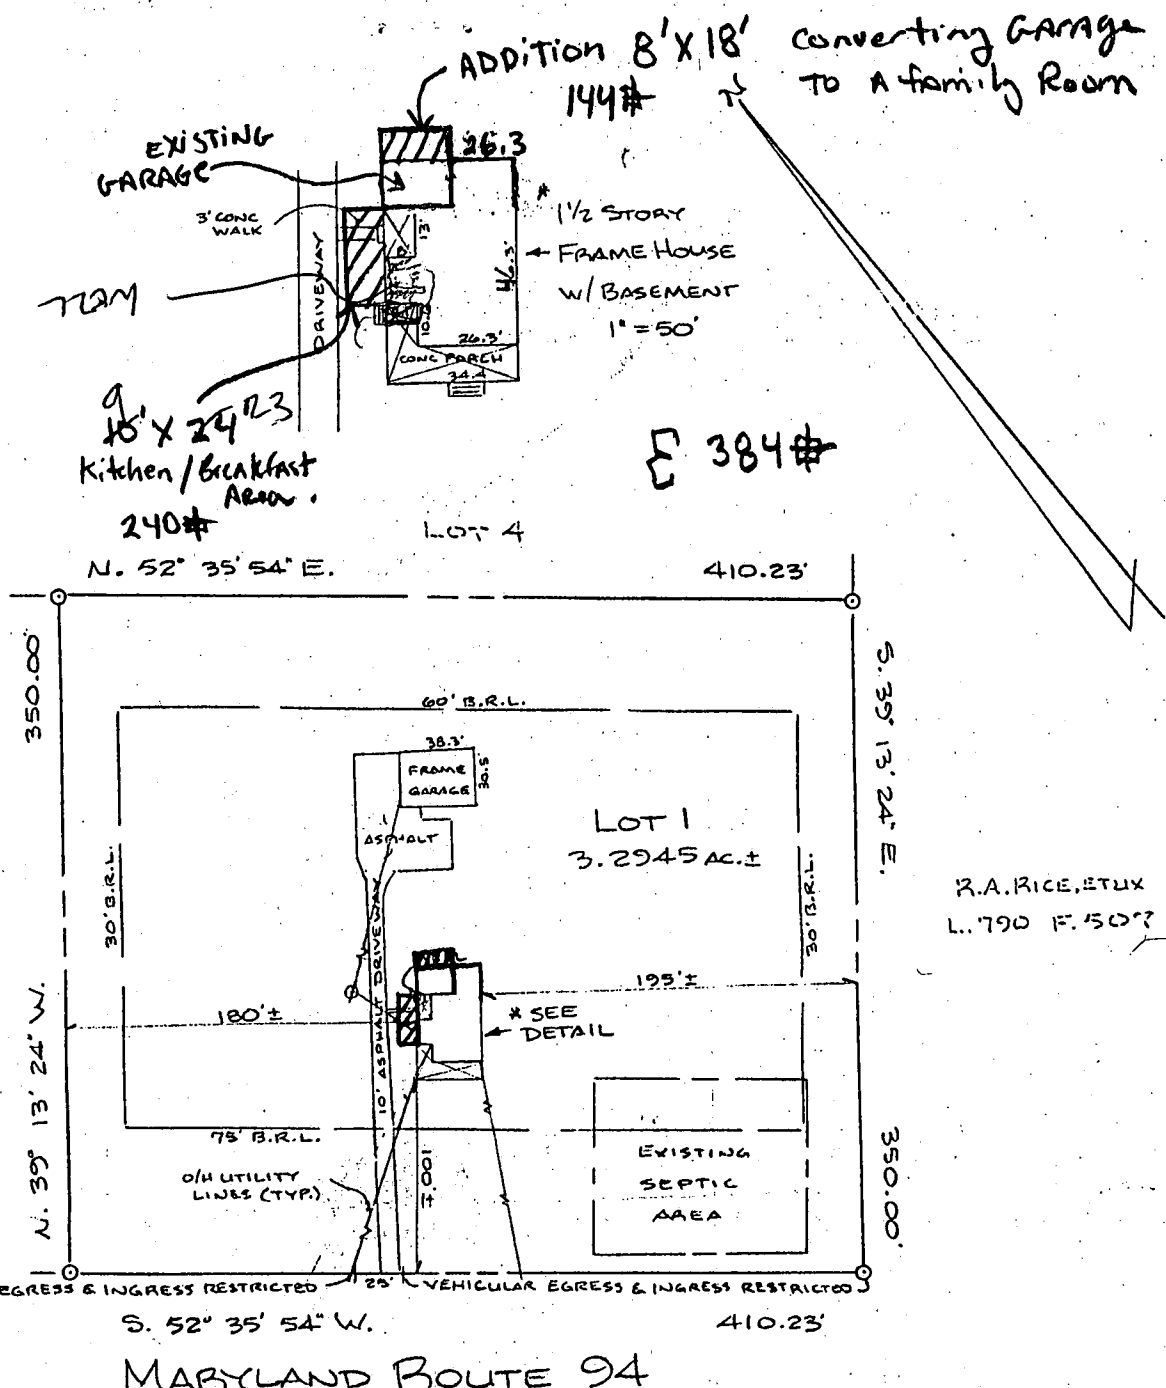 ADDITION 8' X 18'
144#
Converting GARAGE
TO A family Room
EXISTING
GARAGE
26.3
3' CONC
WALK
13'
* 1 1/2 STORY
FRAME HOUSE
W/ BASEMENT
1" = 50'
46.3'
DRIVEWAY
26.3'
CONC PORCH
34.4
9
10' X 24' 23
Kitchen / Breakfast
Area.
240#
Σ 384#
LOT 4
N. 52° 35' 54" E.
410.23'
350.00'
S. 39° 13' 24" E.
60' B.R.L.
38.3'
FRAME
GARAGE
30.5'
ASPHALT
LOT 1
3.2945 AC.±
30' B.R.L.
30' B.R.L.
R.A. RICE, ETUX
L. 790 F. 507
10' ASPHALT DRIVEWAY
180'±
195'±
* SEE
DETAIL
N. 39° 13' 24" W.
75' B.R.L.
O/H UTILITY
LINES (TYP.)
100'±
EXISTING
SEPTIC
AREA
350.00'
EGRESS & INGRESS RESTRICTED
25'
VEHICULAR EGRESS & INGRESS RESTRICTED
S. 52° 35' 54" W.
410.23'
MARYLAND ROUTE 94